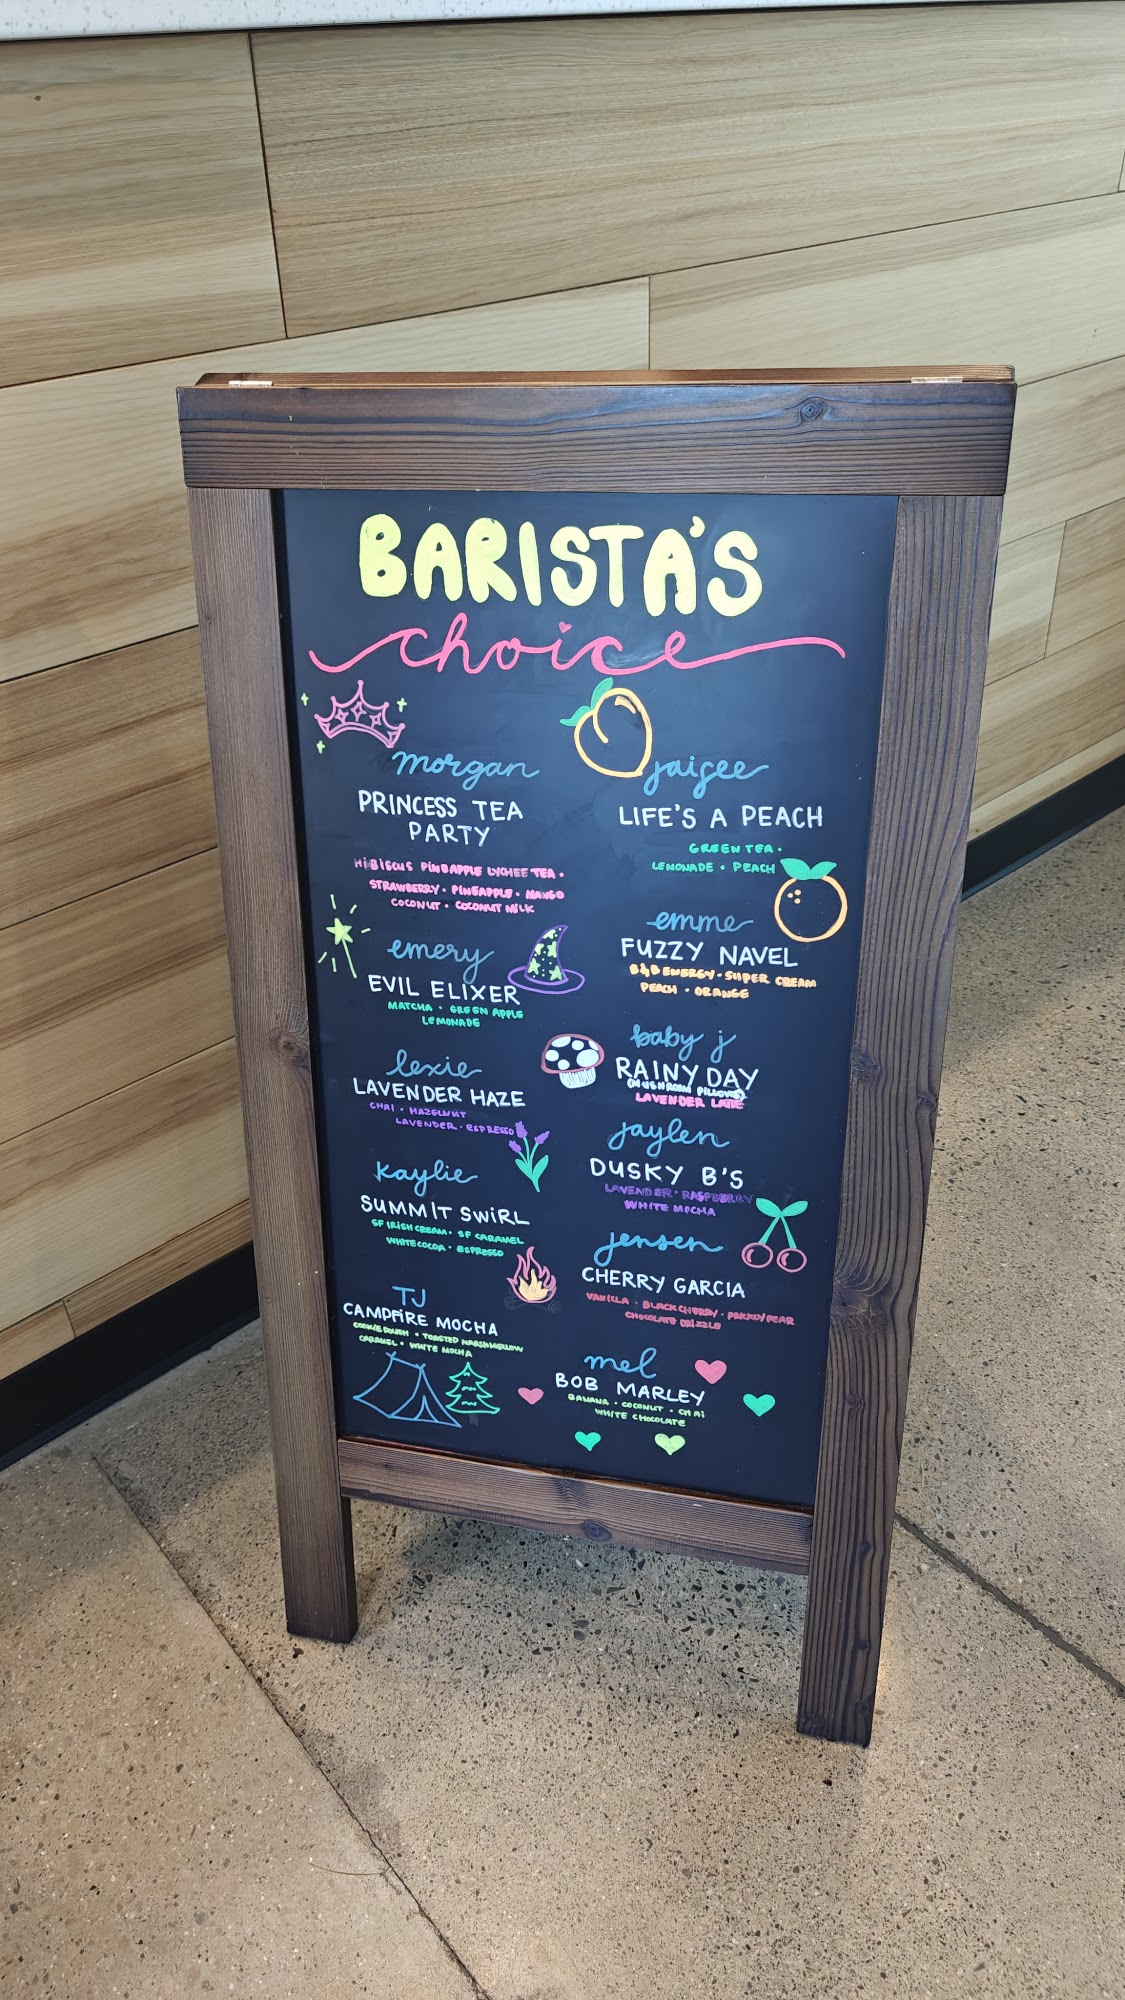 BARISTA'S
choice
morgan
PRINCESS TEA
PARTY
HIBISCUS PINEAPPLE LYCHEE TEA •
STRAWBERRY • PINEAPPLE • MANGO
COCONUT • COCONUT MILK
emery
EVIL ELIXER
MATCHA • GREEN APPLE
LEMONADE
lexie
LAVENDER HAZE
CHAI • HAZELNUT
LAVENDER • ESPRESSO
kaylie
SUMMIT SWIRL
SF IRISH CREAM • SF CARAMEL
WHITE COCOA • ESPRESSO
TJ
CAMPFIRE MOCHA
COOKIE DOUGH • TOASTED MARSHMELLOW
CARAMEL • WHITE MOCHA
jaigee
LIFE'S A PEACH
GREEN TEA •
LEMONADE • PEACH
emme
FUZZY NAVEL
B&B ENERGY • SUPER CREAM
PEACH • ORANGE
baby j
RAINY DAY
(MUSHROOM PILLOWS)
LAVENDER LATTE
jaylen
DUSKY B'S
LAVENDER • RASPBERRY
WHITE MOCHA
jensen
CHERRY GARCIA
VANILLA • BLACK CHERRY • PRICKLY PEAR
CHOCOLATE DRIZZLE
mel
BOB MARLEY
BANANA • COCONUT • CHAI
WHITE CHOCOLATE